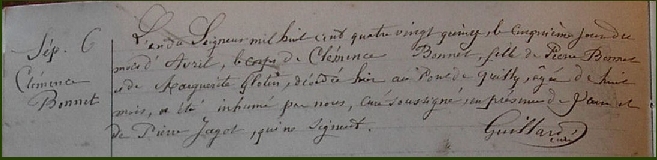 Sép. 6
Clémence
Bonnet
L'an du Seigneur mil huit cent quatre vingt quinze, le cinquième jour du
mois d'Avril, le corps de Clémence Bonnet, fille de Pierre Bonnet
& de Marguerite décédée hier au Pont de Quilly, âgée de huit
mois, a été inhumé par nous, curé soussigné, en présence de
de Pierre Jagot, qui ne signent.
Guillard
curé